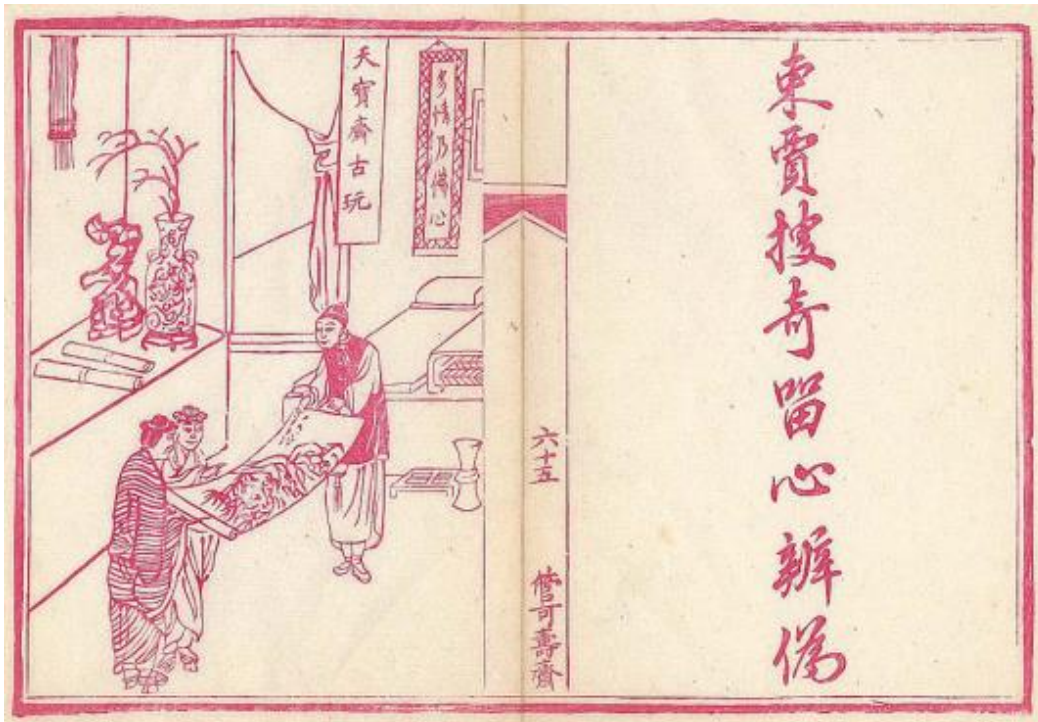 東賈搜奇留心辨偽
六十五
脩可壽齋
多情乃佛心
天寶齋古玩